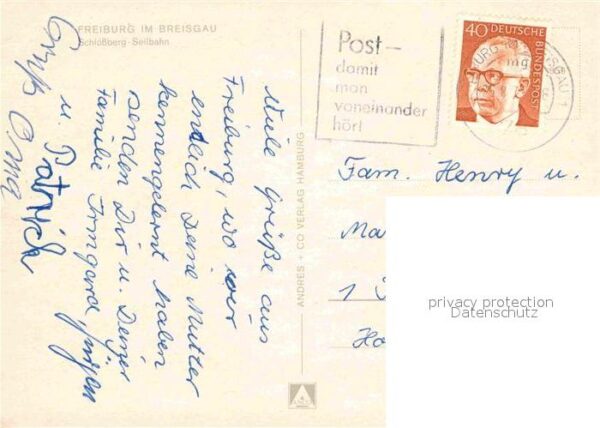 FREIBURG IM BREISGAU
Schloßberg-Seilbahn
Viele Grüße aus
Freiburg, wo wir
endlich Deine Mutter
kennengelernt haben
senden Dir u. Deiner
Familie Irmgard, Jürgen
u. Patrick
Gruß Oma
ANDRES + CO VERLAG HAMBURG
Post-
damit
man
voneinander
hört
40 DEUTSCHE BUNDESPOST
Fam. Henry u.
Ma
1
Ha
privacy protection
Datenschutz